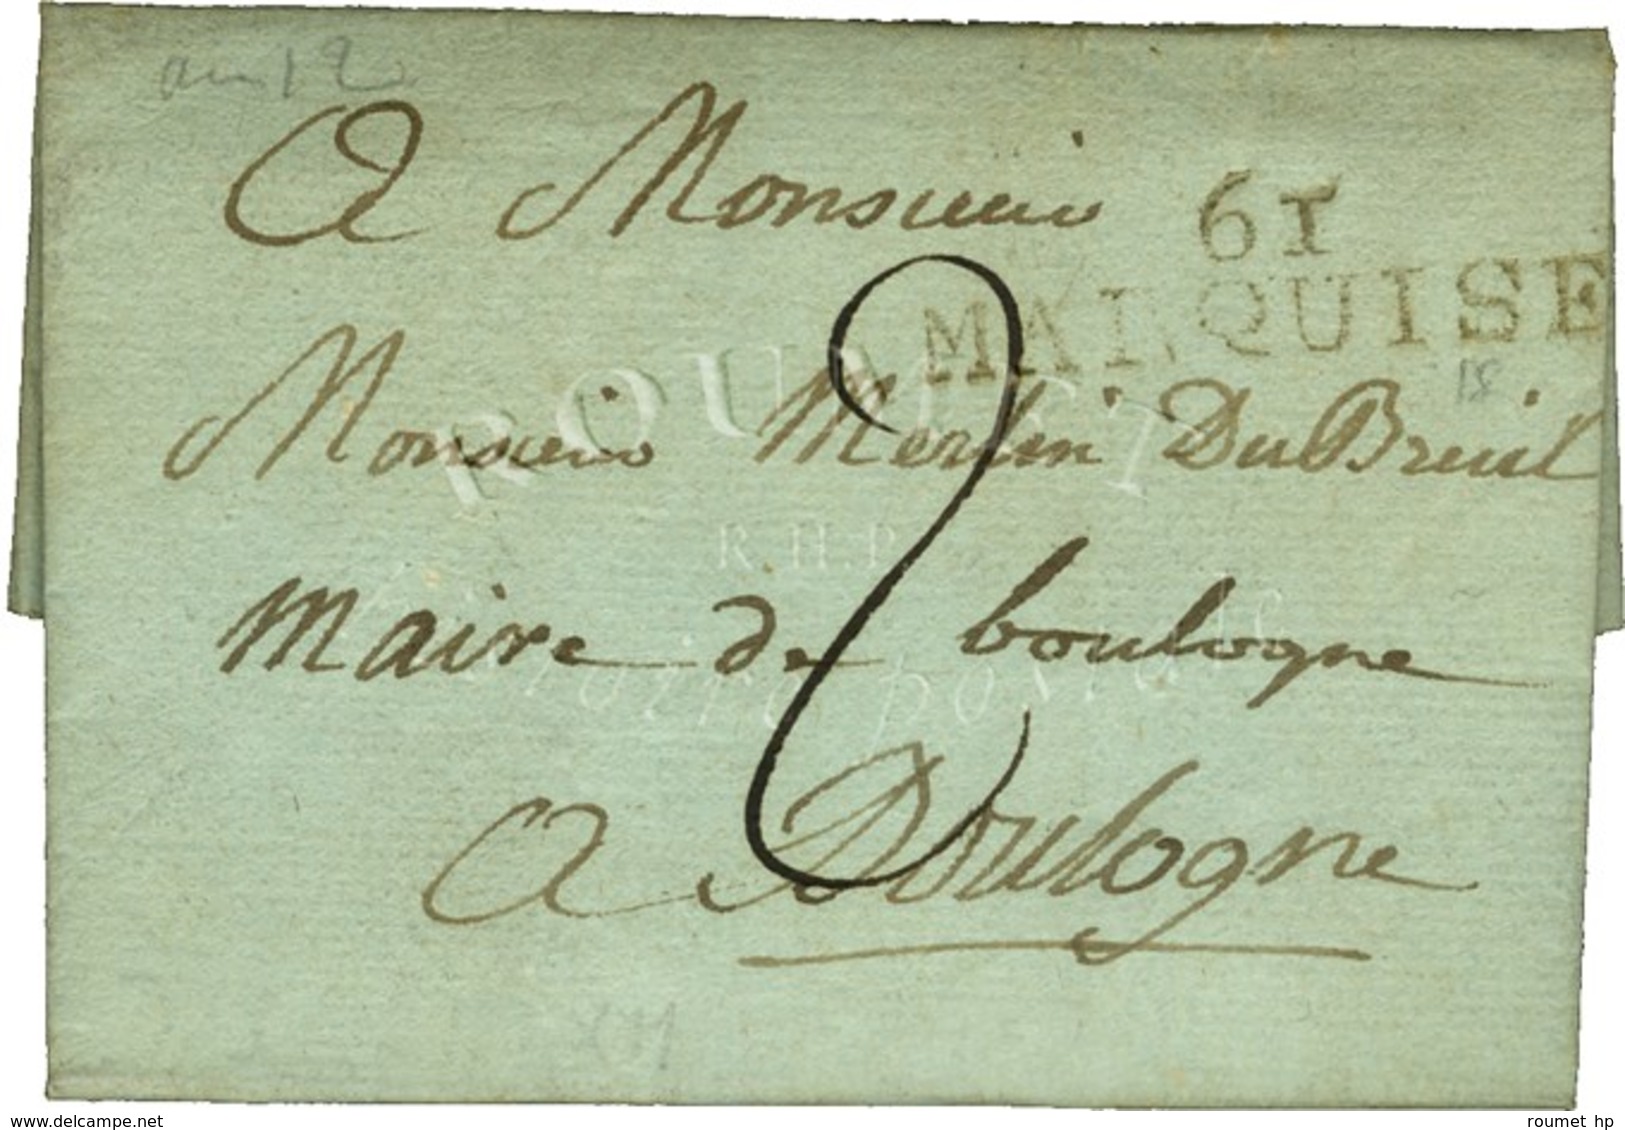 an 12
A Monsieur
61
MARQUISE
18
Monsieur Merlin DuBreuil
maire de boulogne
2
a Boulogne
XII
ROUMET
R.H.P.
Histoire postale
delcampe.net
roumet hp